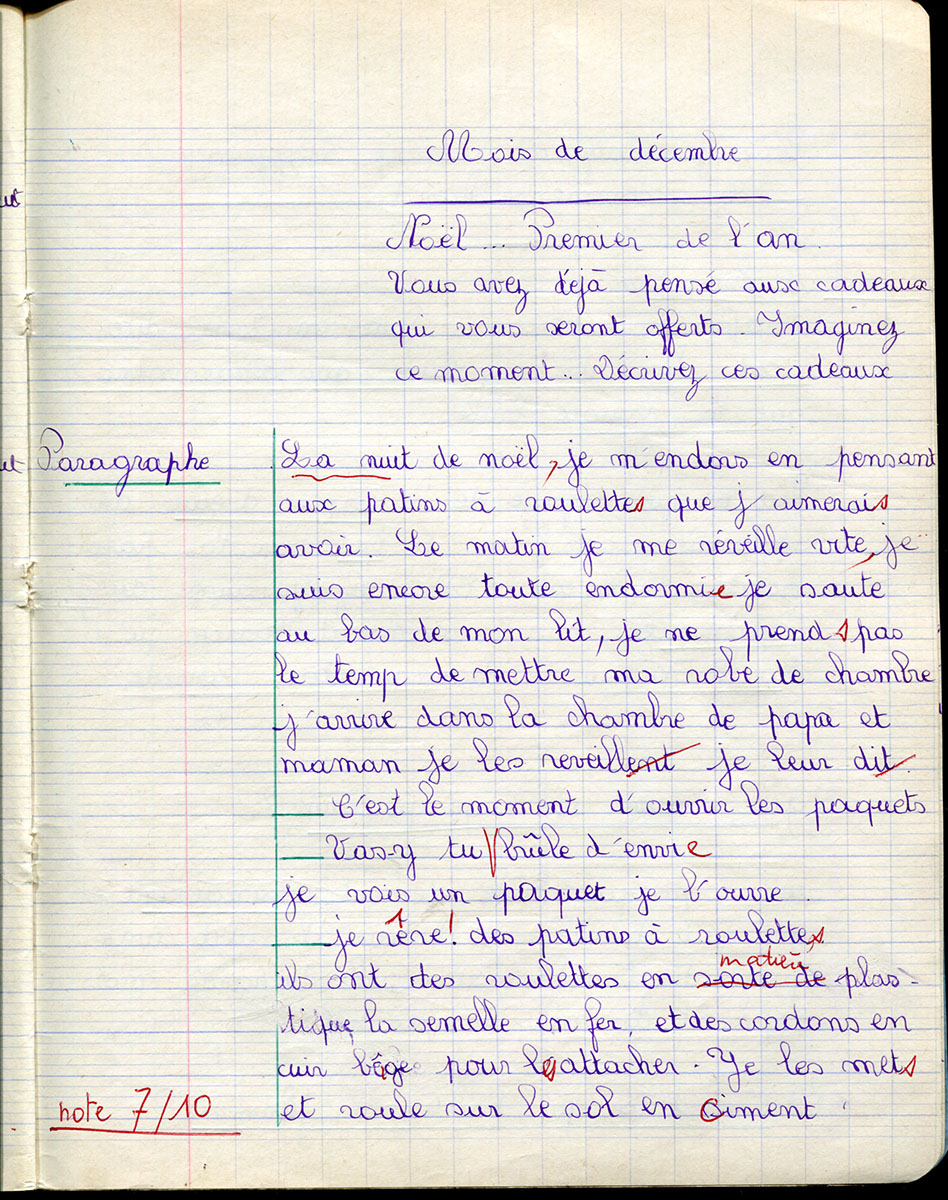 Mois de décembre
Noël... Premier de l'an.
Vous avez déjà pensé aux cadeaux
qui vous seront offerts. Imaginez
ce moment... Décrivez ces cadeaux
Paragraphe
La nuit de noël, je m'endors en pensant
aux patins à roulettes que j'aimerais
avoir. Le matin je me réveille vite, je
suis encore toute endormie je saute
au bas de mon lit, je ne prends pas
le temp de mettre ma robe de chambre
j'arrive dans la chambre de papa et
maman je les reveillent je leur dit
— C'est le moment d'ouvrir les paquets
— Vas-y tu brûle d'envie
je vois un paquet je l'ouvre.
— je rêve! des patins à roulettes
matière
ils ont des roulettes en sorte de plas-
tique, la semelle en fer, et des cordons en
cuir beige pour les attacher. Je les mets
et roule sur le sol en ciment.
note 7/10